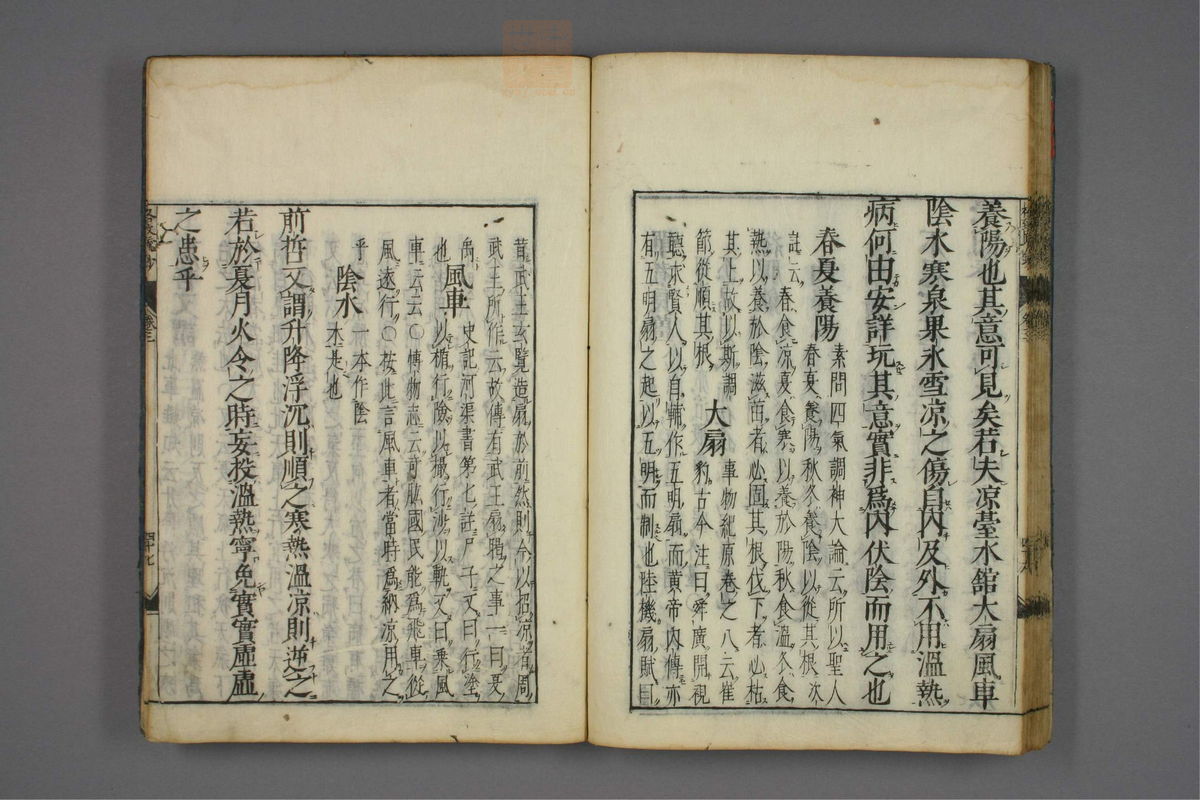 養陽也其意可見矣若夫凉臺水舘大扇風車
陰水寒泉果氷雪凉之傷自内及外不用溫熱
病何由安詳玩其意實非爲内伏陰而用之也
春夏養陽 素問四氣調神大論云所以聖人
春夏養陽秋冬養陰以從其根次
註云春食凉夏食寒以養於陽秋食溫冬食
熱以養於陰滋苗者必固其根伐下者必枯
其上故以斯調
節從順其根 大扇 事物紀原卷之八云崔
豹古今注曰舜廣開視
聽求賢人以自輔作五明扇而黄帝内傳亦
有五明扇之起以五明而制也陸機扇賦曰
昔武王玄覽造扇於前然則今以招凉者周
武王所作云故傳有武王扇暍之事一曰夏
禹
也 風車 史記河渠書第七註尸子文曰行塗
以楯行險以樶行沙以軌又曰乗風
車云云〇博物志云奇肱國民能爲飛車從
風遠行〇按此言風車者當時爲納凉用之
乎 陰水 一本作陰
木是也
前哲又謂升降浮沉則順之寒熱溫凉則逆之
若於夏月火令之時妄投溫熱寧免實實虚虚
之患乎
卷三
四十七